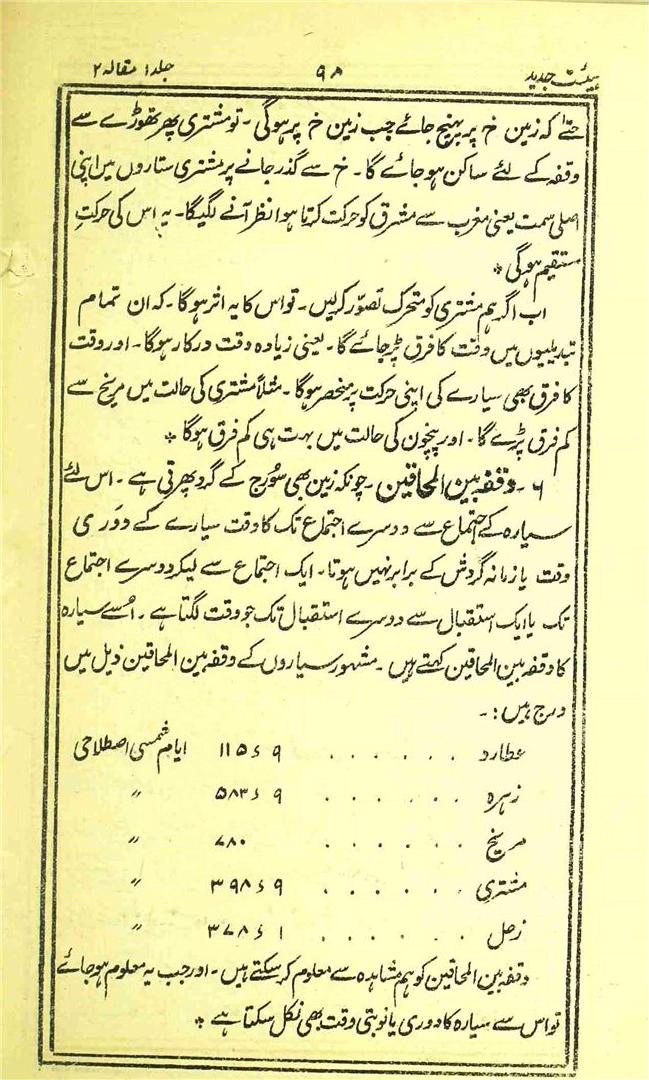 ہیئت جدید ۹۸ جلد ۱ مقالہ ۲
حتےٰ کہ زمین خ پر پہنچ جائے جب زمین خ پر ہوگی۔ تو مشتری پھر تھوڑے سے
وقفہ کے لئے ساکن ہو جائے گا۔ خ سے گذر جانے پر مشتری ستاروں میں اپنی
اصلی سمت یعنی مغرب سے مشرق کو حرکت کرتا ہوا نظر آنے لگیگا۔ یہ اس کی حرکتِ
مستقیم ہوگی *
اب اگر ہم مشتری کو متحرک تصوّر کرلیں۔ تو اس کا یہ اثر ہوگا۔ کہ ان تمام
تبدیلیوں میں وقت کا فرق پڑ جائے گا۔ یعنی زیادہ وقت درکار ہوگا۔ اور وقت
کا فرق بھی سیارے کی اپنی حرکت پر منحصر ہوگا۔ مثلاً مشتری کی حالت میں مریخ سے
کم فرق پڑے گا۔ اور نپچون کی حالت میں بہت ہی کم فرق ہوگا *
۶۔ وقفہ بین المحاقین۔ چونکہ زمین بھی سُورج کے گرد پھرتی ہے۔ اس لئے
سیارہ کے اجتماع سے دوسرے اجتماع تک کا وقت سیارے کے دَوری
وقت یا زمانہ گردش کے برابر نہیں ہوتا۔ ایک اجتماع سے لیکر دوسرے اجتماع
تک یا ایک استقبال سے دوسرے استقبال تک جو وقت لگتا ہے۔ اُسے سیارہ
کا وقفہ بین المحاقین کہتے ہیں۔ مشہور سیاروں کے وقفہ بین المحاقین ذیل میں
درج ہیں:۔
عطارد . . . . . . ۱۱۵ء۹ ایام شمسی اصطلاحی
زہرہ . . . . . . ۵۸۳ء۹ ″
مریخ . . . . . . ۷۸۰ ″
مشتری . . . . . . ۳۹۸ء۹ ″
زحل . . . . . . ۳۷۸ء۱ ″
وقفہ بین المحاقین کو ہم مشاہدہ سے معلوم کر سکتے ہیں۔ اور جب یہ معلوم ہو جائے
تو اس سے سیارہ کا دوری یا نوبتی وقت بھی نکل سکتا ہے *